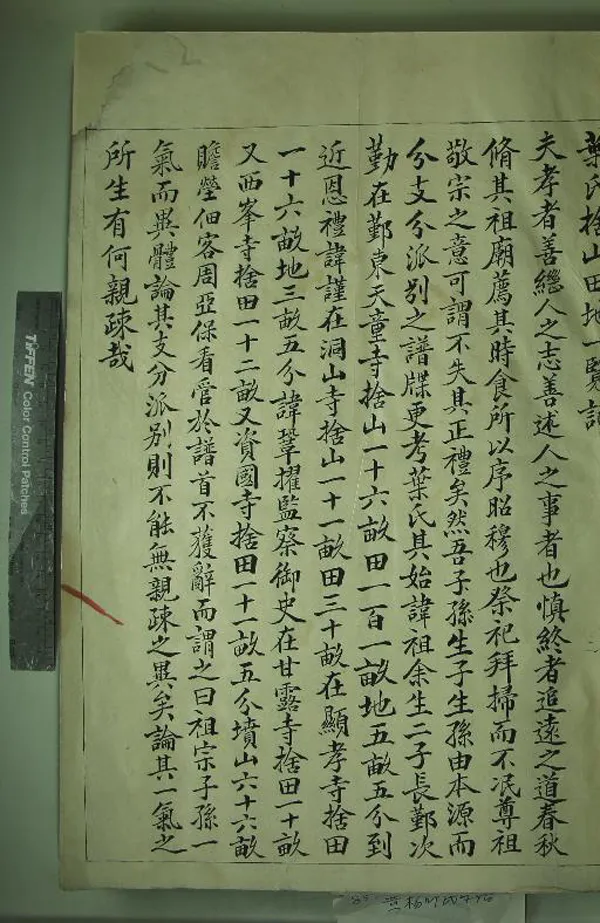 葉氏捨山田地一覽記
夫孝者善繼人之志善述人之事者也慎終者追遠之道春秋
脩其祖廟薦其時食所以序昭穆也祭祀拜掃而不泯尊祖
敬宗之意可謂不失其正禮矣然吾子孫生子生孫由本源而
分支分派別之譜牒更考葉氏其始諱祖余生二子長鄞次
勤在鄞東天童寺捨山一十六畝田一百一畝地五畝五分到
近恩禮諱謹在洞山寺捨山一十一畝田三十畝在顯孝寺捨田
一十六畝地三畝五分諱鞏擢監察御史在甘露寺捨田一十畝
又西峯寺捨田一十二畝又資國寺捨田一十一畝五分墳山六十六畝
瞻塋佃客周亞保看管於譜首不獲辭而謂之曰祖宗子孫一
氣而異體論其支分派別則不能無親疎之異矣論其一氣之
所生有何親疎哉
TIFFEN Color Control Patches